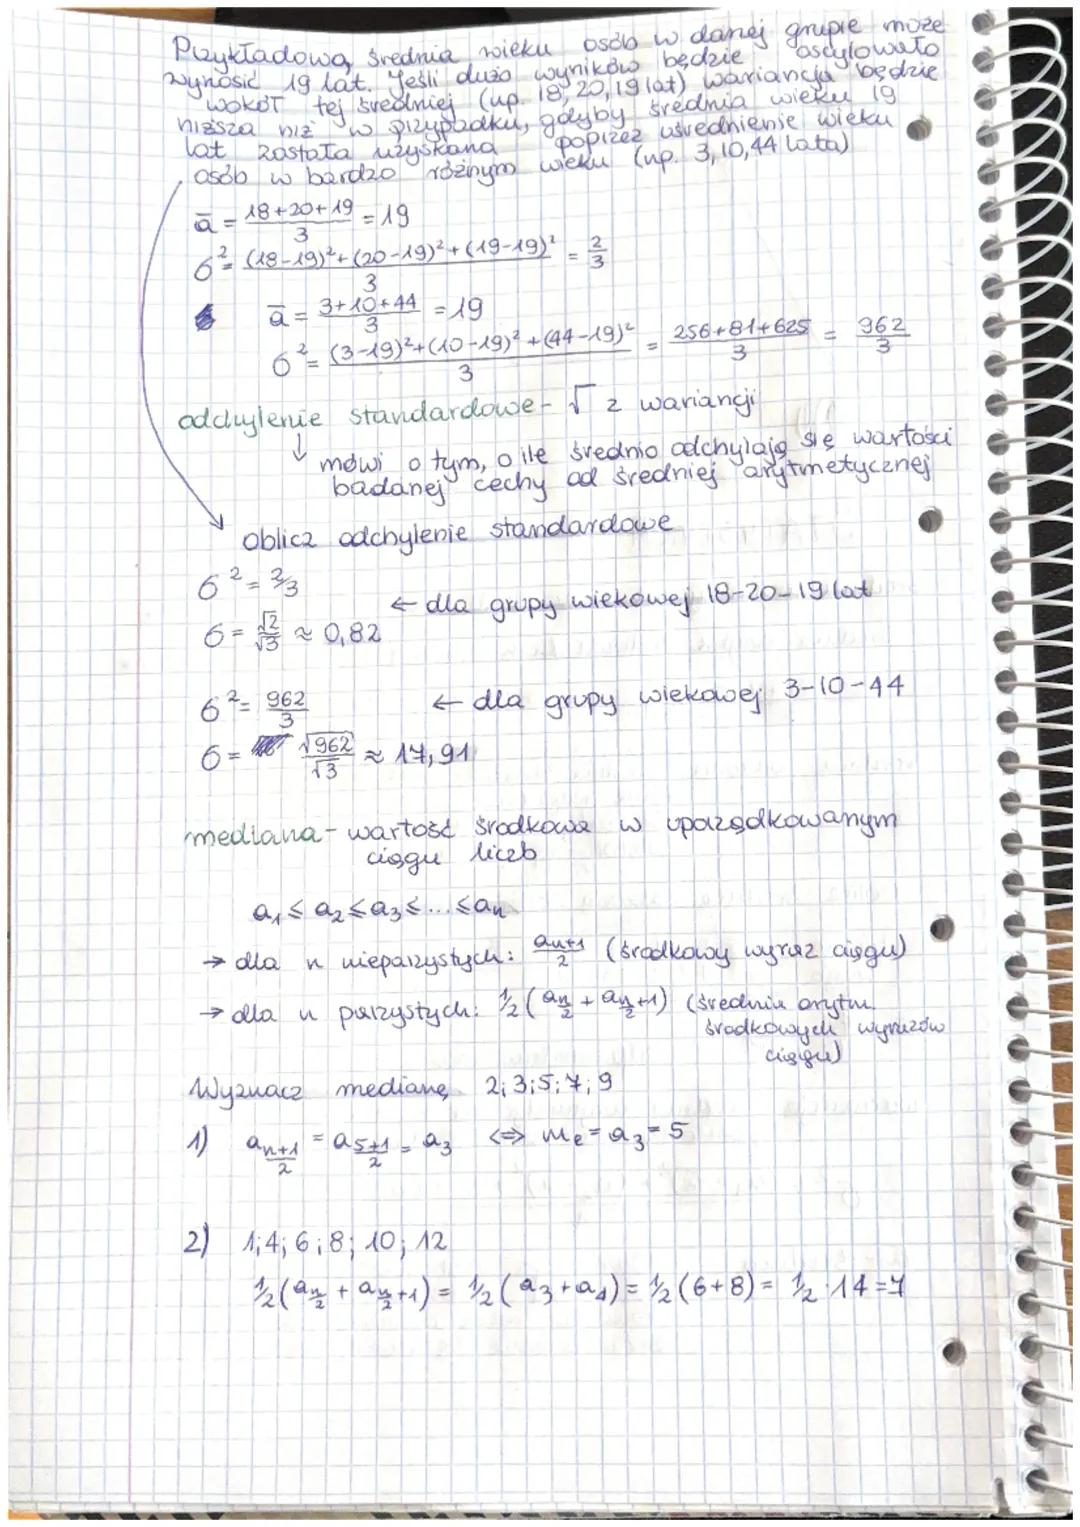 Przykładową średnia wieku osób w danej grupie może
wynosić 19 lat. Jeśli dużo wyników będzie oscylowało
wokół tej średniej (np. 18, 20, 19 lat) wariancja będzie
niższa niż w przypadku, gdyby średnia wieku 19
lat została uzyskana poprzez uśrednienie wieku
osób w bardzo różnym wieku (np. 3, 10, 44 lata)
ā = (18+20+19)/3 = 19
σ² = ((18-19)²+(20-19)²+(19-19)²)/3 = 2/3
ā = (3+10+44)/3 = 19
σ² = ((3-19)²+(10-19)²+(44-19)²)/3 = (256+81+625)/3 = 962/3
odchylenie standardowe - √ z wariancji
↓ mówi o tym, o ile średnio odchylają się wartości
badanej cechy od średniej arytmetycznej
oblicz odchylenie standardowe
σ² = 2/3
← dla grupy wiekowej 18-20-19 lat
σ = √2/√3 ≈ 0,82
σ² = 962/3 ← dla grupy wiekowej 3-10-44
σ = √962/√3 ≈ 17,91
mediana - wartość środkowa w uporządkowanym
ciągu liczb
a₁ ≤ a₂ ≤ a₃ ≤ ... ≤ aₙ
→ dla n nieparzystych: a_(n+1)/2 (środkowy wyraz ciągu)
→ dla n parzystych: ½(a_n/2 + a_n/2+1) (średnia arytm.
środkowych wyrazów
ciągu)
Wyznacz medianę 2; 3; 5; 7; 9
1) a_(n+1)/2 = a_(5+1)/2 = a₃ <=> Me = a₃ = 5
2) 1; 4; 6; 8; 10; 12
½(a_n/2 + a_n/2+1) = ½(a₃+a₄) = ½(6+8) = ½·14 = 7